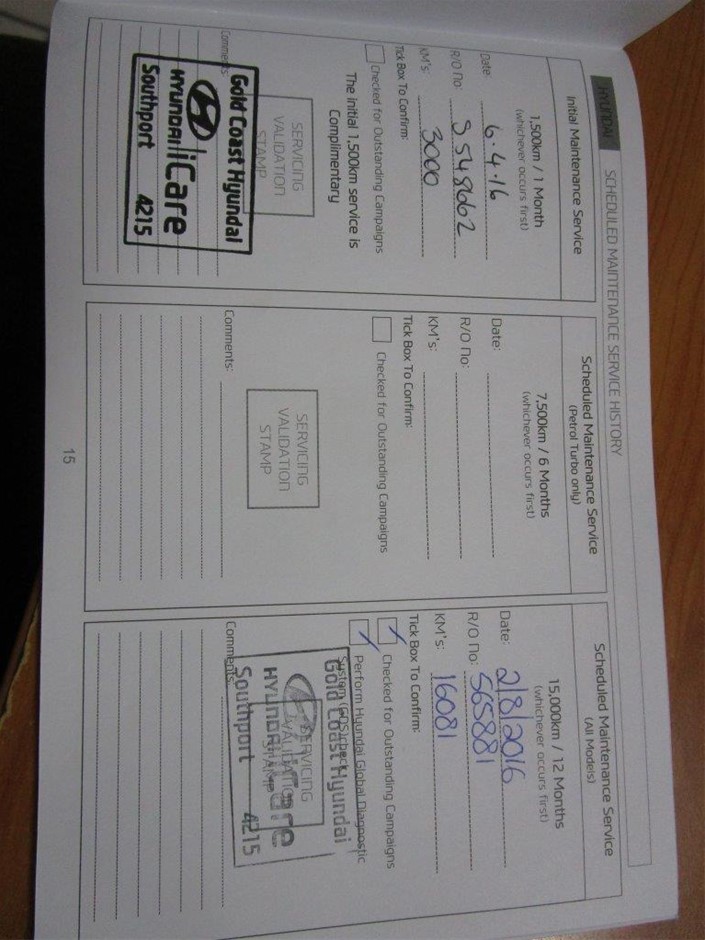 HYUNDAI SCHEDULED MAINTENANCE SERVICE HISTORY
Initial Maintenance Service
1,500km / 1 Month
(whichever occurs first)
Date: 6.4.16
R/O No: 3548662
KM's: 3000
Tick Box To Confirm:
Checked for Outstanding Campaigns
The initial 1,500km service is
Complimentary
SERVICING
VALIDATION
STAMP
Gold Coast Hyundai
HYUNDAI iCare
Southport 4215
Comments:
Scheduled Maintenance Service
(Petrol Turbo only)
7,500km / 6 Months
(whichever occurs first)
Date:
R/O No:
KM's:
Tick Box To Confirm:
Checked for Outstanding Campaigns
SERVICING
VALIDATION
STAMP
Comments:
Scheduled Maintenance Service
(All Models)
15,000km / 12 Months
(whichever occurs first)
Date: 2/8/2016
R/O No: 565881
KM's: 16081
Tick Box To Confirm:
Checked for Outstanding Campaigns
Perform Hyundai Global Diagnostic
System (GDS) check
Gold Coast Hyundai
SERVICING
VALIDATION
STAMP
HYUNDAI iCare
Southport 4215
Comments:
15